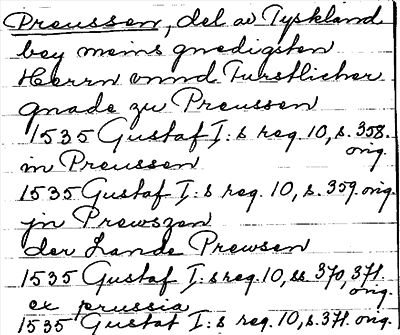 Preussen, del av Tyskland
bey meins gnedigsten
Herrn vnnd Furstlicher
gnade zu Preussen
1535 Gustaf I:s reg. 10, s. 358.
orig.
in Preussen
1535 Gustaf I:s reg. 10, s. 359. orig.
jn Prewszen
der Lande Prewsen
1535 Gustaf I:s reg. 10, ss. 370, 371.
orig.
ex prussia
1535 Gustaf I:s reg. 10, s. 371. orig.